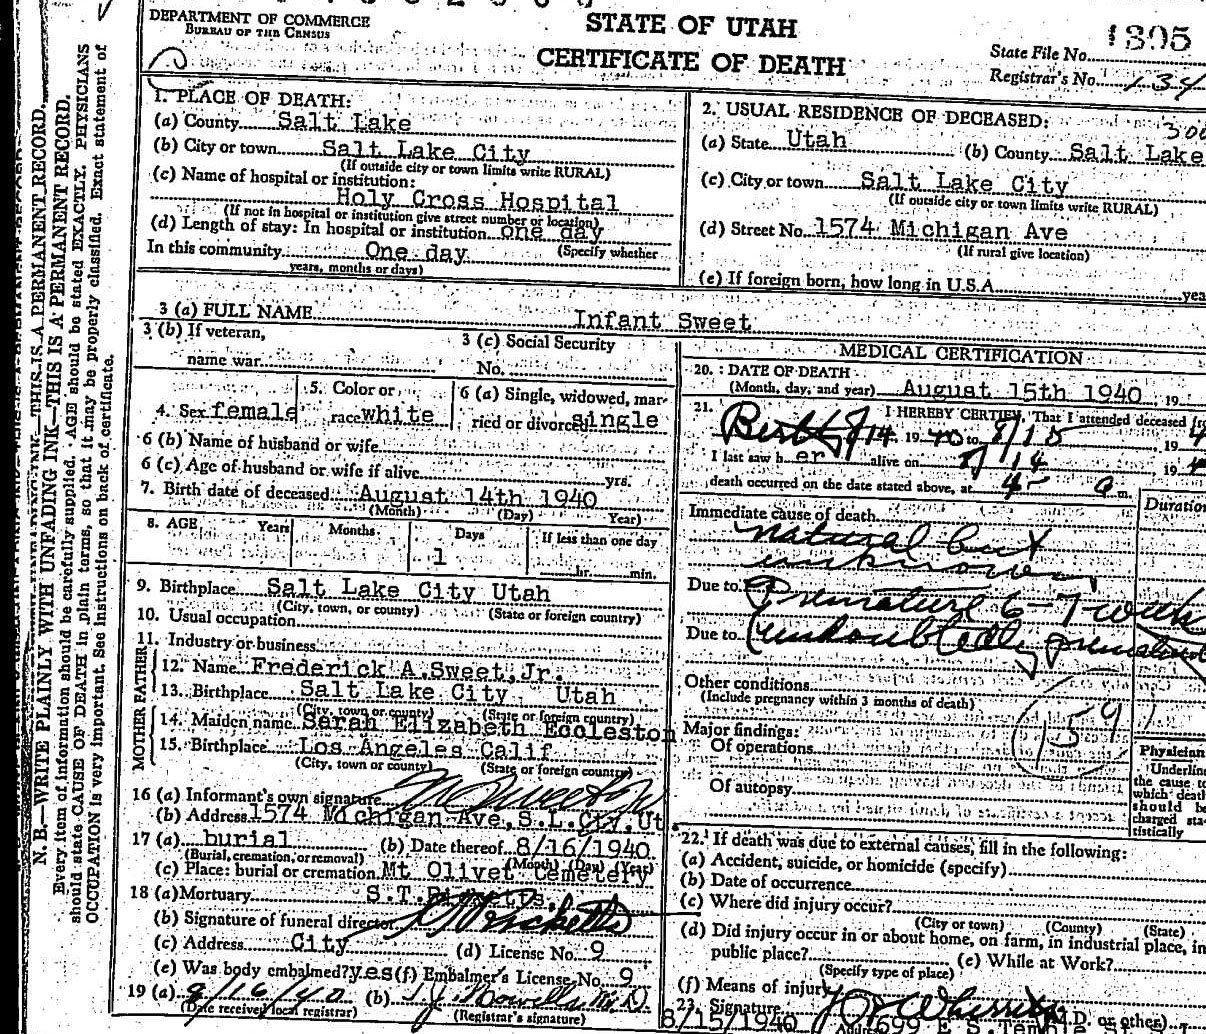 DEPARTMENT OF COMMERCE
BUREAU OF THE CENSUS
STATE OF UTAH
CERTIFICATE OF DEATH
State File No. 1395
Registrar's No. 134
N. B.—WRITE PLAINLY WITH UNFADING INK—THIS IS A PERMANENT RECORD.
Every item of information should be carefully supplied. AGE should be stated EXACTLY. PHYSICIANS
should state CAUSE OF DEATH in plain terms, so that it may be properly classified. Exact statement of
OCCUPATION is very important. See instructions on back of certificate.
1. PLACE OF DEATH:
(a) County Salt Lake
(b) City or town Salt Lake City
(If outside city or town limits write RURAL)
(c) Name of hospital or institution:
Holy Cross Hospital
(If not in hospital or institution give street number or location)
(d) Length of stay: In hospital or institution one day
In this community One day (Specify whether
years, months or days)
2. USUAL RESIDENCE OF DECEASED:
300
(a) State Utah (b) County Salt Lake
(c) City or town Salt Lake City
(If outside city or town limits write RURAL)
(d) Street No. 1574 Michigan Ave
(If rural give location)
(e) If foreign born, how long in U.S.A. yea
3 (a) FULL NAME Infant Sweet
3 (b) If veteran,
name war
3 (c) Social Security
No.
4. Sex female
5. Color or
race white
6 (a) Single, widowed, mar-
ried or divorced single
6 (b) Name of husband or wife
6 (c) Age of husband or wife if alive yrs.
7. Birth date of deceased August 14th 1940
(Month) (Day) Year)
8. AGE Years Months Days If less than one day
1 hr. min.
9. Birthplace Salt Lake City Utah
(City, town, or county) (State or foreign country)
10. Usual occupation
11. Industry or business
FATHER
12. Name Frederick A.Sweet,Jr.
13. Birthplace Salt Lake City Utah
(City, town or county) (State or foreign country)
MOTHER
14. Maiden name Sarah Elizabeth Eccleston
15. Birthplace Los Angeles Calif
(City, town or county) (State or foreign country)
16 (a) Informant's own signature
(b) Address 1574 Michigan Ave,S.L.Cty,Ut
17 (a) burial (b) Date thereof 8/16/1940
(Burial, cremation, or removal) (Month) (Day) (Year)
(c) Place: burial or cremation Mt Olivet Cemetery
18 (a) Mortuary S.T.Ricketts.
(b) Signature of funeral director Ricketts
(c) Address City (d) License No. 9
(e) Was body embalmed? yes (f) Embalmer's License No. 9
19 (a) 8/16/40 (b)
(Date received local registrar) (Registrar's signature)
MEDICAL CERTIFICATION
20. DATE OF DEATH
(Month, day, and year) August 15th 1940, 19
21. I HEREBY CERTIFY, That I attended deceased
Birth 8/14 1940 to 8/15 19 4
I last saw her alive on 8/14 19 4
death occurred on the date stated above, at 4 a m.
Duration
Immediate cause of death
natural but
unknown,
Due to Premature 6-7 week
Due to (undoubtedly
Other conditions
(Include pregnancy within 3 months of death)
159
Major findings:
Of operations
Of autopsy
Physician
Underline
the cause to
which death
should be
charged sta-
tistically
22. If death was due to external causes, fill in the following:
(a) Accident, suicide, or homicide (specify)
(b) Date of occurrence
(c) Where did injury occur?
(City or town) (County) (State)
(d) Did injury occur in or about home, on farm, in industrial place, in
public place? (e) While at Work?
(Specify type of place)
(f) Means of injury
23. Signature (M.D. or other)
8/15/1940 Address 1699 E S.Temple